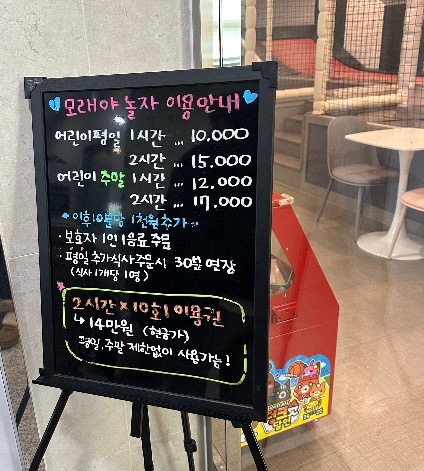 모래야 놀자 이용안내
어린이평일 1시간 ... 10.000
2시간 ... 15.000
어린이 주말 1시간 ... 12.000
2시간 ... 17.000
이후 10분당 1천원추가
· 보호자 1인 1음료 주문
· 평일 추가식사주문시 30분 연장
(식사 1개당 1명)
2시간 × 10회 이용권
↳ 14만원 (현금가)
평일, 주말 제한없이 사용가능!